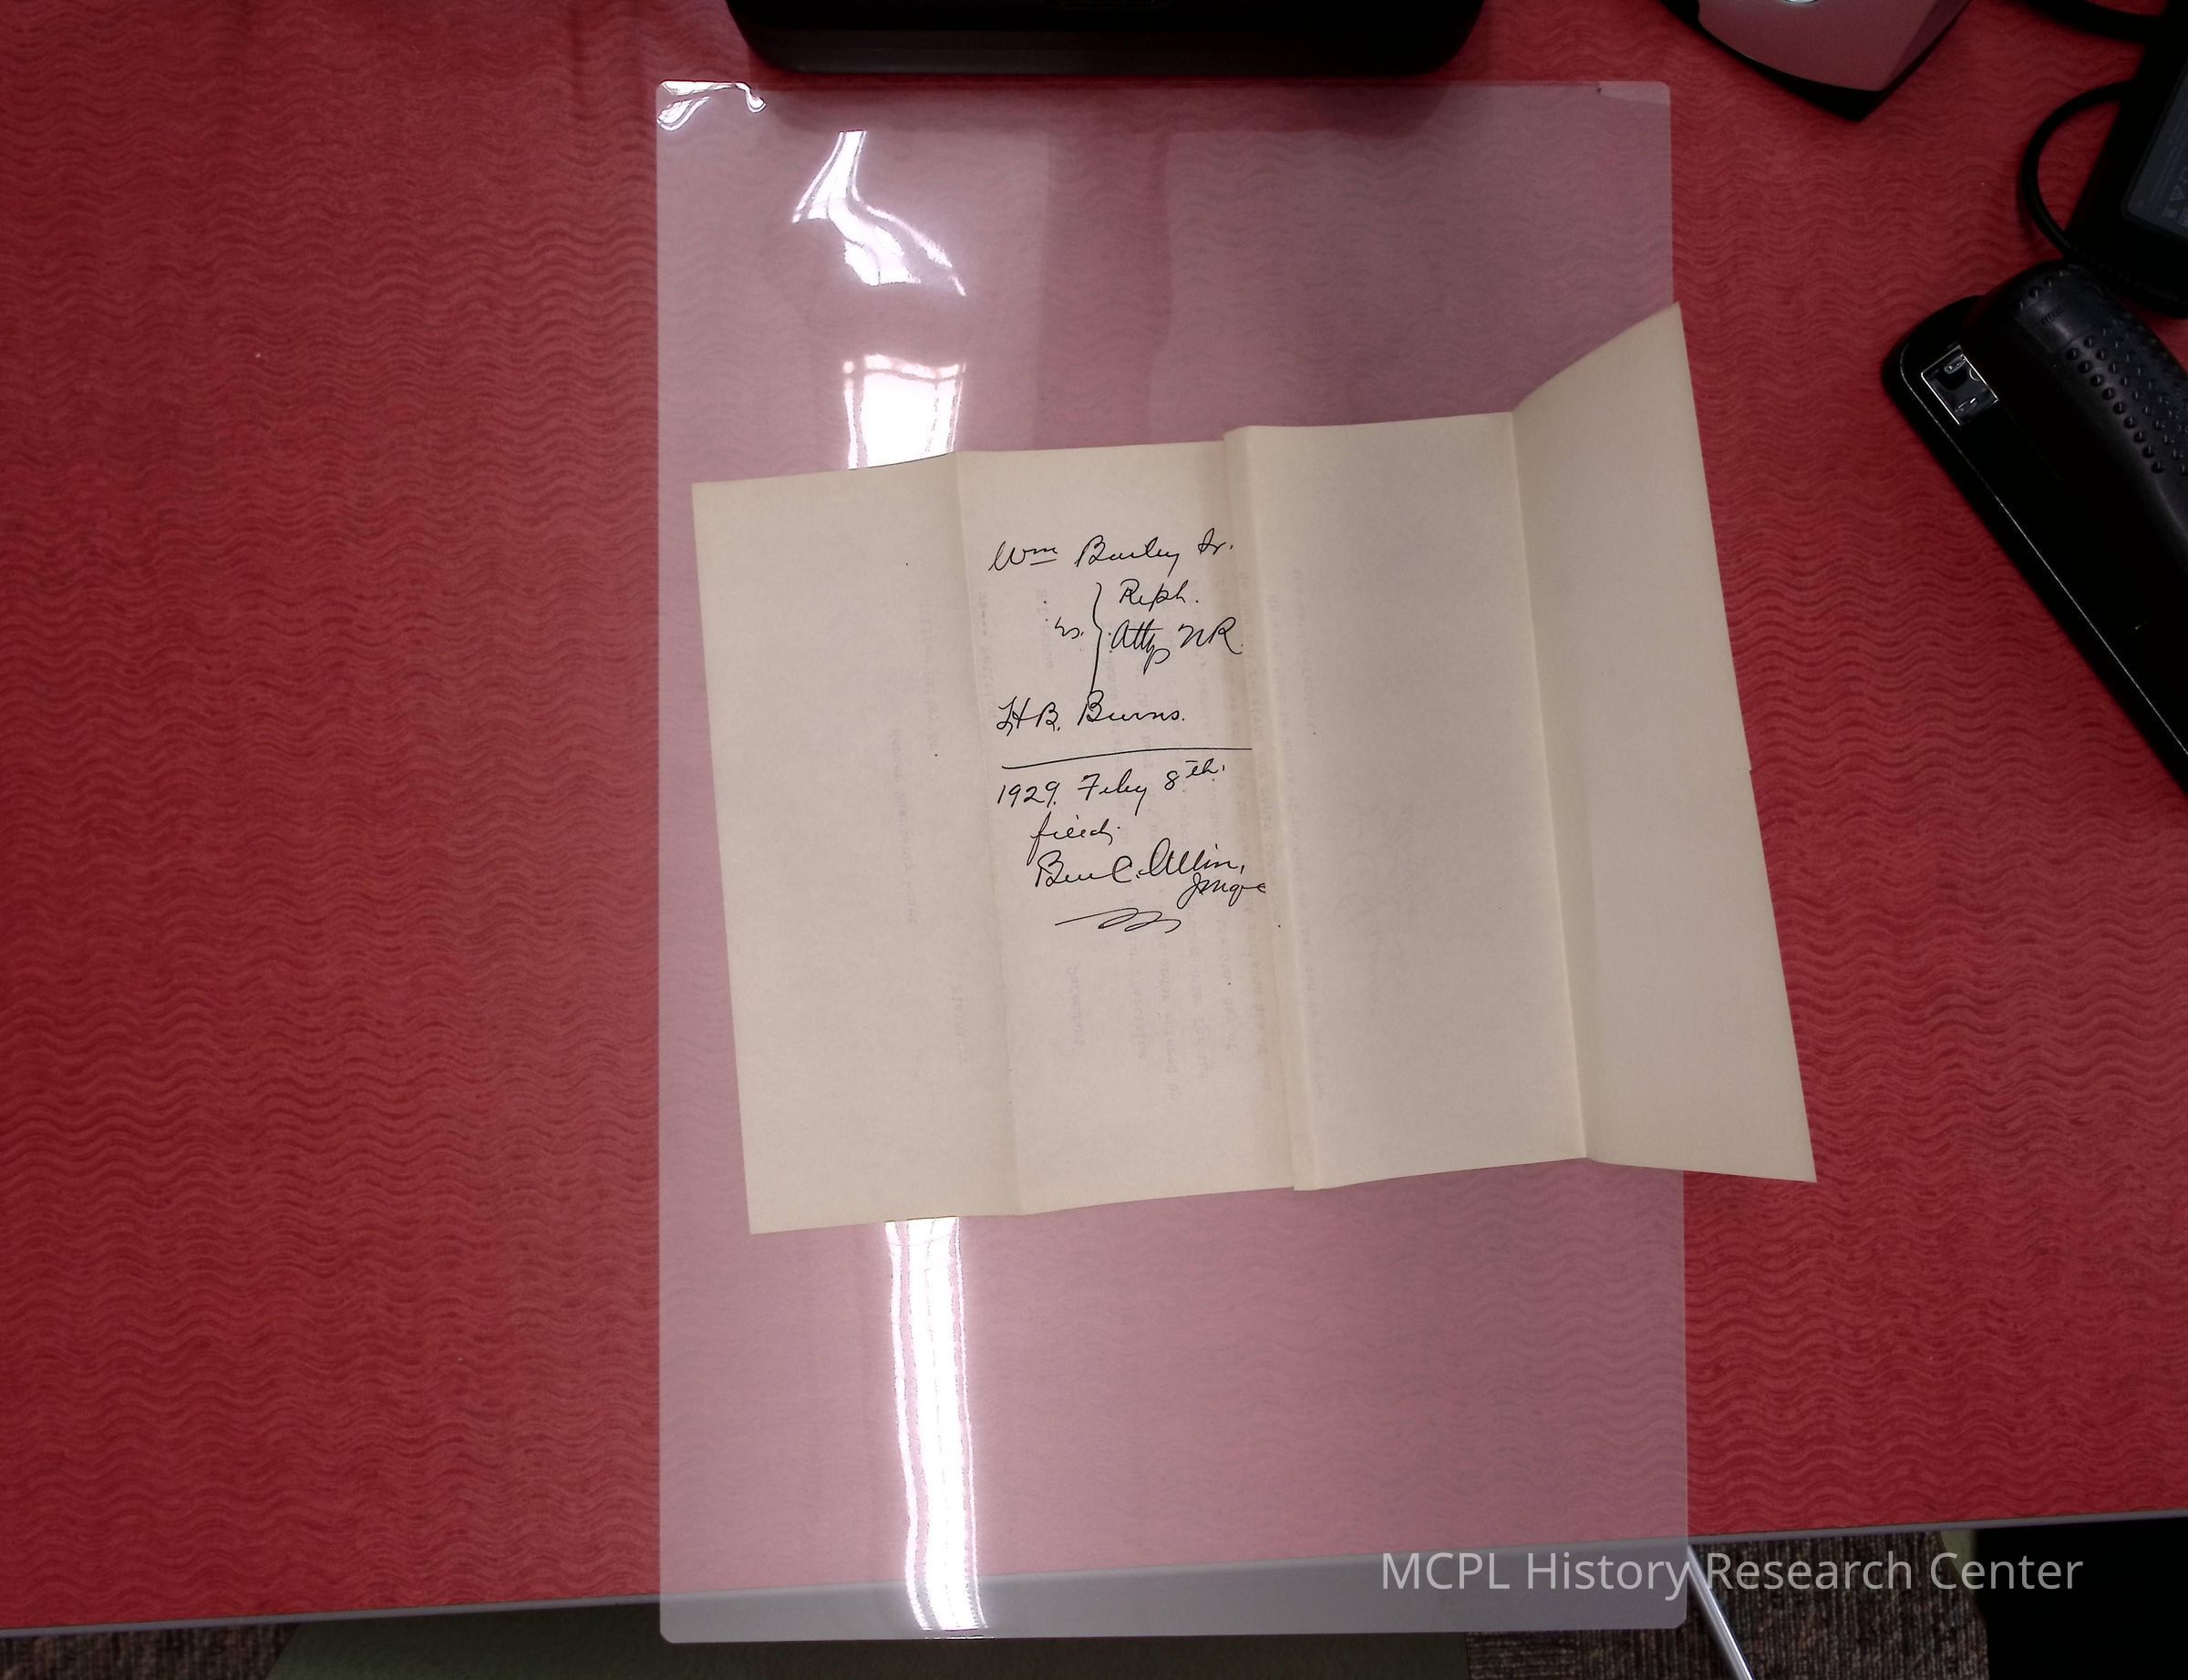 Wm Burley Sr.
vs. } Reph.
Atty NR.
H.B. Burns.
1929. Feby 8th.
filed,
Ben C. Allin,
MCPL History Research Center